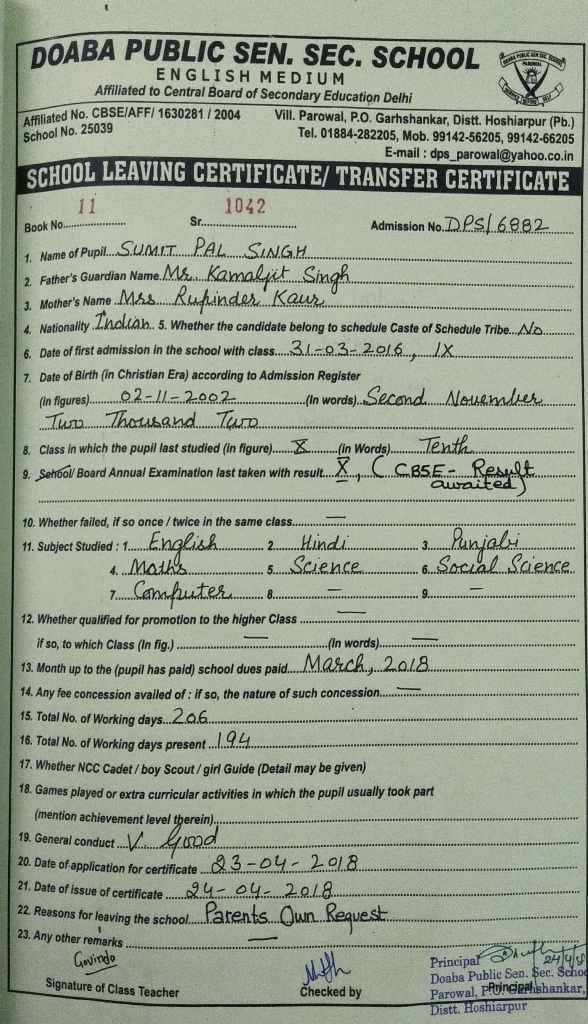 DOABA PUBLIC SEN. SEC. SCHOOL
ENGLISH MEDIUM
Affiliated to Central Board of Secondary Education Delhi
Affiliated No. CBSE/AFF/ 1630281 / 2004
School No. 25039
Vill. Parowal, P.O. Garhshankar, Distt. Hoshiarpur (Pb.)
Tel. 01884-282205, Mob. 99142-56205, 99142-66205
E-mail : dps_parowal@yahoo.co.in
SCHOOL LEAVING CERTIFICATE/ TRANSFER CERTIFICATE
Book No. 11 Sr. 1042 Admission No. DPS/6882
1. Name of Pupil SUMIT PAL SINGH
2. Father's Guardian Name Mr. Kamaljit Singh
3. Mother's Name Mrs Rupinder Kaur
4. Nationality Indian 5. Whether the candidate belong to schedule Caste of Schedule Tribe No
6. Date of first admission in the school with class 31-03-2016, IX
7. Date of Birth (in Christian Era) according to Admission Register
(In figures) 02-11-2002 (In words) Second November
Two Thousand Two
8. Class in which the pupil last studied (in figure) X (in Words) Tenth
9. School/ Board Annual Examination last taken with result X, (CBSE- Result
awaited)
10. Whether failed, if so once / twice in the same class —
11. Subject Studied : 1. English 2. Hindi 3. Punjabi
4. Maths 5. Science 6. Social Science
7. Computer 8. — 9. —
12. Whether qualified for promotion to the higher Class —
if so, to which Class (In fig.) — (In words) —
13. Month up to the (pupil has paid) school dues paid March, 2018
14. Any fee concession availed of : if so, the nature of such concession —
15. Total No. of Working days 206
16. Total No. of Working days present 194
17. Whether NCC Cadet / boy Scout / girl Guide (Detail may be given)
18. Games played or extra curricular activities in which the pupil usually took part
(mention achievement level therein)
19. General conduct V. Good
20. Date of application for certificate 23-04-2018
21. Date of issue of certificate 24-04-2018
22. Reasons for leaving the school Parents Own Request
23. Any other remarks —
Govindo
Signature of Class Teacher
Checked by
Principal 24/4/18
Doaba Public Sen. Sec. School
Parowal, P.O. Garhshankar,
Principal
Distt. Hoshiarpur